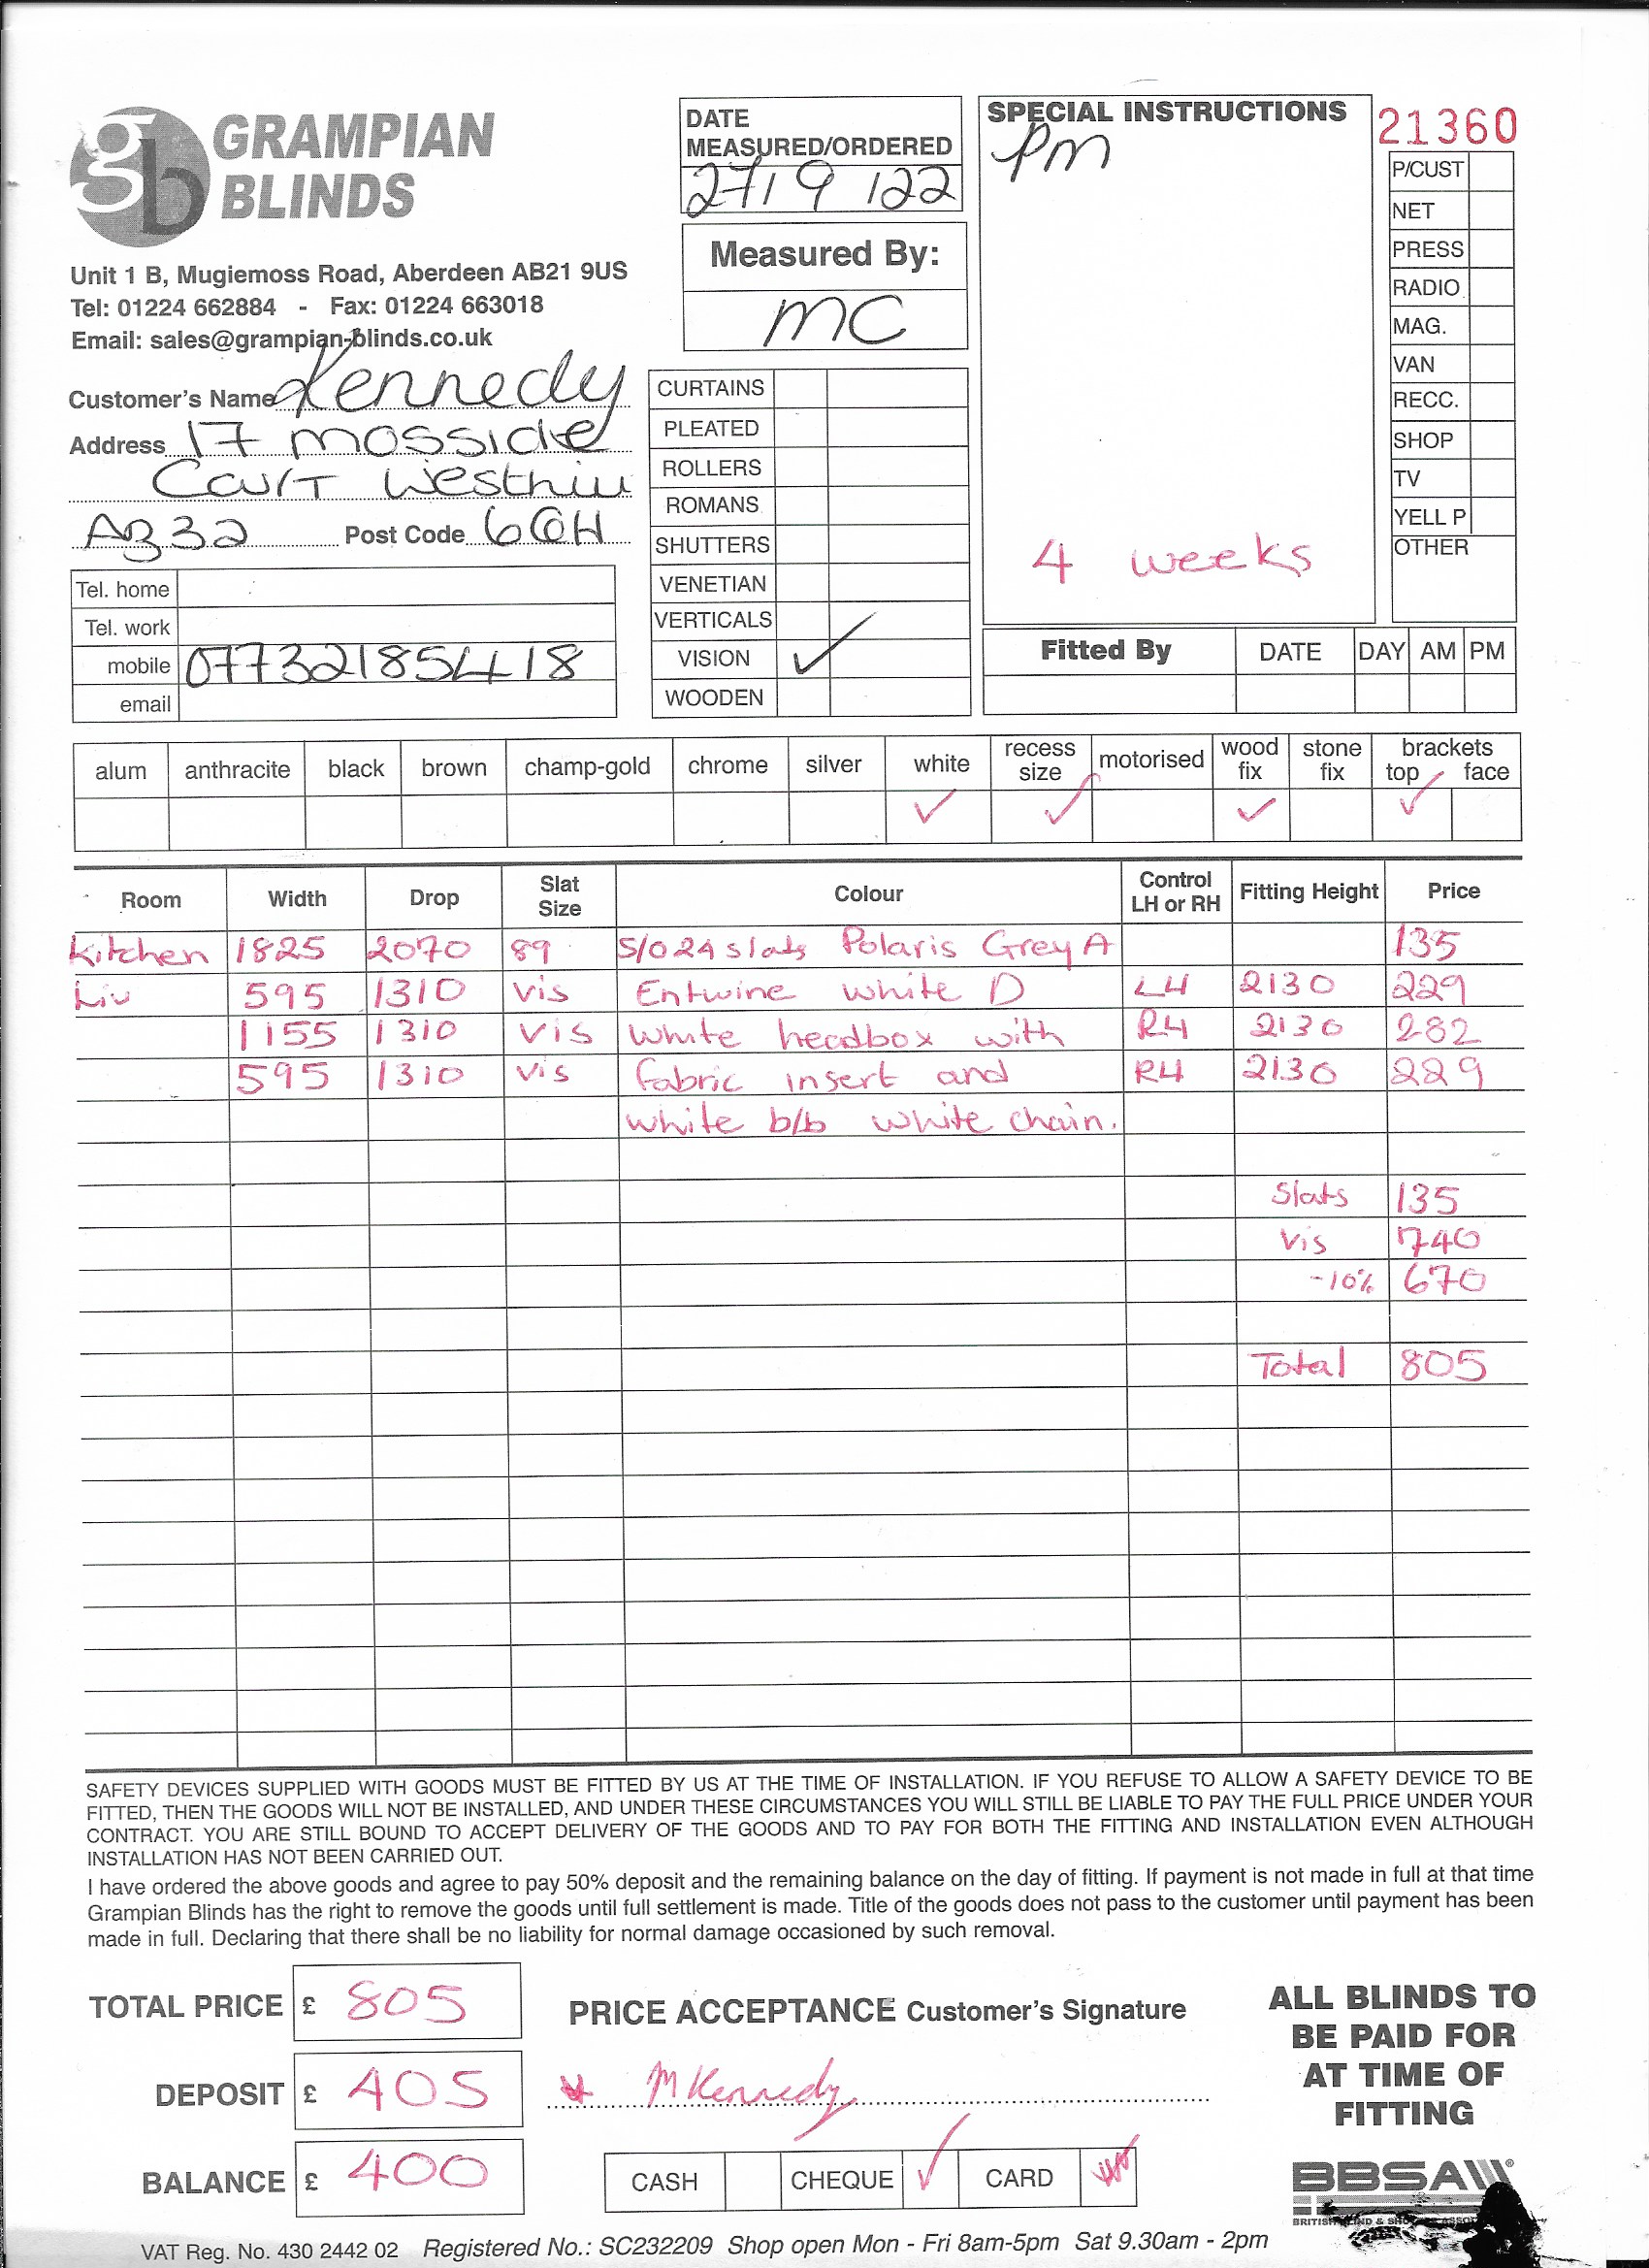 gb GRAMPIAN
BLINDS
Unit 1 B, Mugiemoss Road, Aberdeen AB21 9US
Tel: 01224 662884 - Fax: 01224 663018
Email: sales@grampian-blinds.co.uk
Customer's Name Kennedy
Address 17 Mosside
Court Westhill
AB32 Post Code 6QH
Tel. home
Tel. work
mobile 077321854418
email
DATE
MEASURED/ORDERED
27/9/22
Measured By:
MC
CURTAINS
PLEATED
ROLLERS
ROMANS
SHUTTERS
VENETIAN
VERTICALS
VISION ✓
WOODEN
SPECIAL INSTRUCTIONS
PM
4 weeks
21360
P/CUST
NET
PRESS
RADIO
MAG.
VAN
RECC.
SHOP
TV
YELL P
OTHER
Fitted By DATE DAY AM PM
alum anthracite black brown champ-gold chrome silver white recess size motorised wood fix stone fix brackets top face
✓ ✓ ✓ ✓
Room Width Drop Slat Size Colour Control LH or RH Fitting Height Price
Kitchen 1825 2070 89 S/O 24 slats Polaris Grey A 135
Liv 595 1310 vis Entwine white D LH 2130 229
1155 1310 vis white headbox with RH 2130 282
595 1310 vis fabric insert and RH 2130 229
white b/b white chain.
Slats 135
Vis 740
-10% 670
Total 805
SAFETY DEVICES SUPPLIED WITH GOODS MUST BE FITTED BY US AT THE TIME OF INSTALLATION. IF YOU REFUSE TO ALLOW A SAFETY DEVICE TO BE
FITTED, THEN THE GOODS WILL NOT BE INSTALLED, AND UNDER THESE CIRCUMSTANCES YOU WILL STILL BE LIABLE TO PAY THE FULL PRICE UNDER YOUR
CONTRACT. YOU ARE STILL BOUND TO ACCEPT DELIVERY OF THE GOODS AND TO PAY FOR BOTH THE FITTING AND INSTALLATION EVEN ALTHOUGH
INSTALLATION HAS NOT BEEN CARRIED OUT.
I have ordered the above goods and agree to pay 50% deposit and the remaining balance on the day of fitting. If payment is not made in full at that time
Grampian Blinds has the right to remove the goods until full settlement is made. Title of the goods does not pass to the customer until payment has been
made in full. Declaring that there shall be no liability for normal damage occasioned by such removal.
TOTAL PRICE £ 805
DEPOSIT £ 405
BALANCE £ 400
PRICE ACCEPTANCE Customer's Signature
M Kennedy
CASH CHEQUE ✓ CARD
ALL BLINDS TO
BE PAID FOR
AT TIME OF
FITTING
BBSA
VAT Reg. No. 430 2442 02 Registered No.: SC232209 Shop open Mon - Fri 8am-5pm Sat 9.30am - 2pm